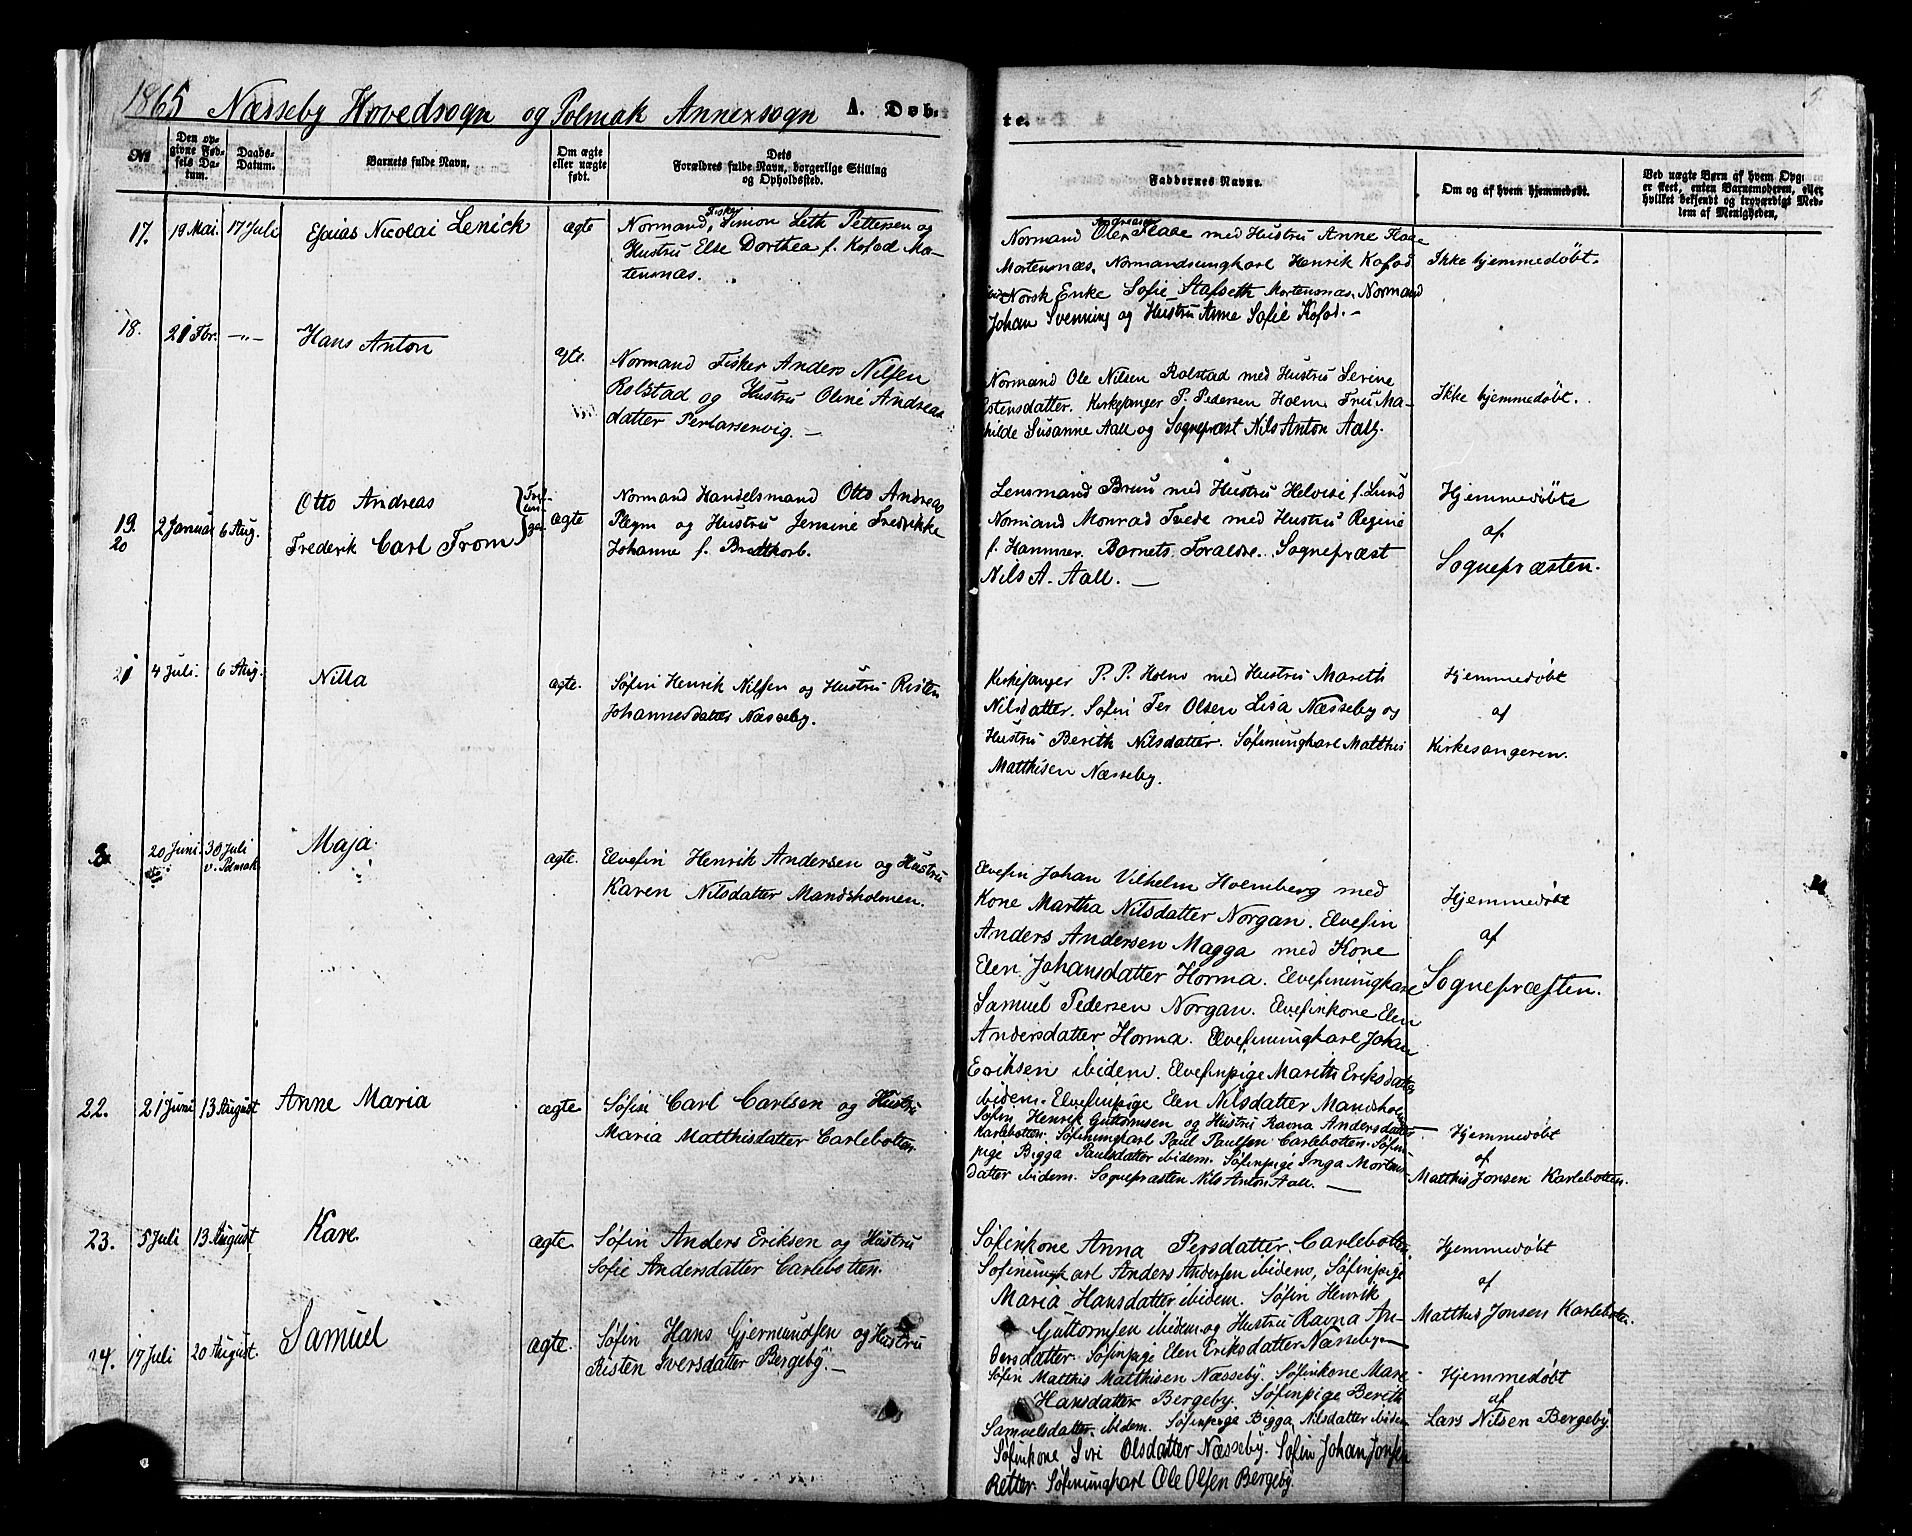 1865 Næsseby Hovedsogn og Polmak Annexsogn A. Døb-
te.
5.
No
Den op-
givne Fød-
sels Da-
tum.
Daabs-
Datum.
Barnets fulde Navn.
Om ægte
eller uægte
født.
Dets
Forældres fulde Navn, borgerlige Stilling
og Opholdssted.
Faddernes Navne.
Om og af hvem hjemmedøbt.
Ved uægte Børn af hvem Opgiven
er skeet, enten Barnemoderen, eller
hvilket bekjendt og troværdigt Med-
lem af Menigheden.
17. 19 Mai. 17 Juli Esaias Nicolai Lenick ægte
Fisker
Normand, Simon Leth Pettersen og
Hustru Else Dorthea f. Kofod Mor-
tensnæs.
Andreas
Normand Ole Flaae med Hustru Anne Flaae
Mortensnæs. Normandsungkarl Henrik Kofod
Norsk Enke Sofie Stafseth Mortensnæs. Normand
Johan Svenning og Hustru Anne Sofie Kofod. -
Ikke hjemmedøbt.
18. 21 Fbr. -"- Hans Anton ægte.
Normand Fisker Anders Nilsen
Rolstad og Hustru Oline Andreas
datter Perlarsenvig. -
Normand Ole Nilsen Rolstad med Hustru Serine
Estensdatter. Kirkesanger P. Pedersen Holm. Fru Ma-
thilde Susanne Aall og Sognepræst Nils Anton Aall.
Ikke hjemmedøbt.
19.
20
2 Januar 6 Aug.
Otto Andreas
Frederik Carl From
Tvil-
lin-
ger
ægte
Normand Handelsmand Otto Andreas
Plejm og Hustru Jensine Fredrikke
Johanne f. Bredtkorb.
Lensmand Bruu med Hustru Helvise f. Lund
Normand Monrad Tvede med Hustru Regine
f. Hammer. Barnets Forældre. Sognepræst
Nils A. Aall. -
Hjemmedøbte
af
Sognepræsten.
21 4 Juli. 6 Aug. Nilla ægte.
Søfin Henrik Nilsen og Hustru Risten
Johannesdatter Næsseby.
Kirkesanger P. P. Holm med Hustru Mareth
Nilsdatter. Søfin Per Olsen Lisa Næsseby og
Hustru Bereth Nilsdatter. Søfinungkarl Matthis
Matthisen Næsseby.
Hjemmedøbt
af
Kirkesangeren.
20 Juni. 30 Juli
v. Polmak
Maja. ægte.
Elvefin Henrik Andersen og Hustru
Karen Nilsdatter Mandsholmen.
Elvefin Johan Vilhelm Holmberg med
Kone Martha Nilsdatter Norgan. Elvefin
Anders Andersen Magga med Kone
Elen Johansdatter Horma. Elvefinungkarl
Samuel Pedersen Norgan. Elvefinkone Elen
Andersdatter Horma. Elvefinungkarl Johan
Eriksen ibidem. Elvefinpige Mareth Eriksdatter
ibidem. Elvefinpige Elen Nilsdatter Mandshol
Hjemmedøbt
af
Sognepræsten.
22. 21 Juni 13 August Anne Maria ægte
Søfin Carl Carlsen og Hustru
Maria Matthisdatter Carlebotten
Søfin Henrik Guttormsen og Hustru Ravna Andersdatter
Karlebotten. Søfinungkarl Paul Paulsen Carlebotten. Søfin-
pige Bigga Paulsdatter ibidem. Søfinpige Inga Mortens-
datter ibidem. Sognepræsten Nils Anton Aall. -
Hjemmedøbt
af
Matthis Jonsen Karlebotten.
23. 5 Juli 13 August Kare ægte
Søfin Anders Eriksen og Hustru
Sofie Andersdatter Carlebotten.
Søfinkone Anna Persdatter Carlebotten.
Søfinungkarl Anders Andersen ibidem, Søfinpige
Maria Hansdatter ibidem. Søfin Henrik
Guttormsen ibidem og Hustru Ravna An-
dersdatter. Søfinpige Elen Eriksdatter Næsseby
Hjemmedøbt
af
Matthis Jonsen Karlebotten.
24. 17 Juli 20 August. Samuel ægte.
Søfin Hans Gjermundsen og Hustru
Risten Iversdatter Bergeby. -
Søfin Matthis Matthisen Næsseby. Søfinkone Mare
Hansdatter Bergeby. Søfinpige Bereth
Samuelsdatter ibidem. Søfinpige Bigga Nilsdatter ibidem
Søfinkone Siri Olsdatter Næsseby. Søfin Johan Jonsen
Retter. Søfinungkarl Ole Olsen Bergeby.
Hjemmedøbt
af
Lars Nilsen Bergeby.